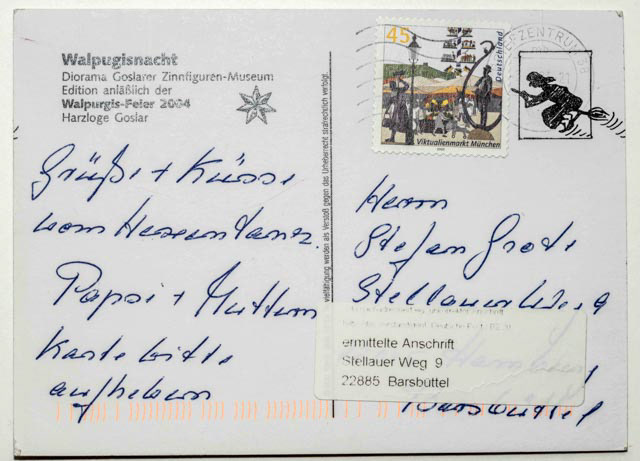 Walpugisnacht
Diorama Goslarer Zinnfiguren-Museum
Edition anläßlich der
Walpurgis-Feier 2004
Harzloge Goslar
45
Deutschland
Viktualienmarkt München
ZENTRUM 38
Grüße + Küsse
vom Hexentanz.
Papsi + Muttern
Karte bitte
aufheben
vielfältigung werden als Verstoß gegen das Urheberrecht strafrechtlich verfolgt.
Herrn
Stefan Grote
Stellauer Weg 9
ermittelte Anschrift
Stellauer Weg 9
22885 Barsbüttel
Barsbüttel